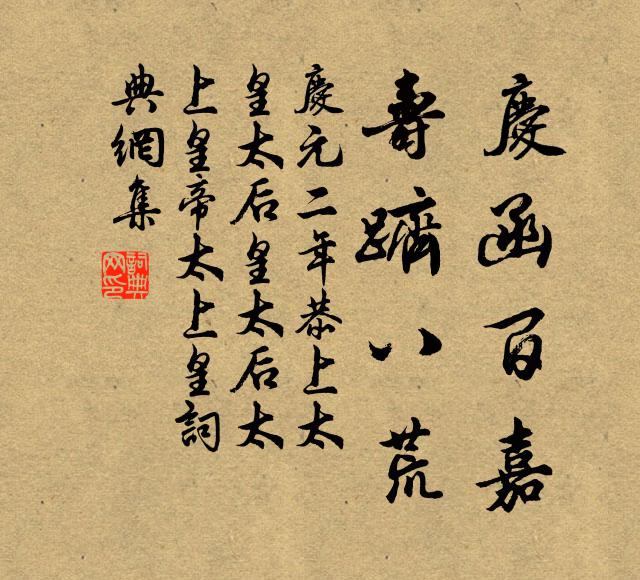 慶函百嘉
壽躋八荒
慶元二年恭上太
皇太后皇太后太
上皇帝太上皇詞
典網集
詞典
网印